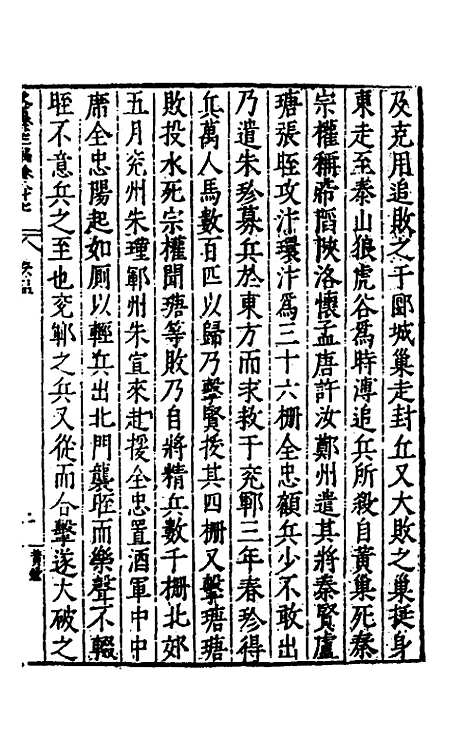 及克用追敗之于郾城巢走封丘又大敗之巢挺身
東走至泰山狼虎谷為時溥追兵所殺自黃巢死秦
宗權稱帝陷陝洛懷孟唐許汝鄭州遣其將秦賢盧
瑭張晊攻汴環汴爲三十六柵全忠顧兵少不敢出
乃遣朱珍募兵於東方而求救于兖鄆三年春珍得
兵萬人馬數百匹以歸乃擊賢拔其四柵又擊瑭瑭
敗投水死宗權聞瑭等敗乃自將精兵數千柵北郊
五月兖州朱瑾鄆州朱宣來赴援全忠置酒軍中中
席全忠陽起如厠以輕兵出北門襲晊而樂聲不輟
晊不意兵之至也兖鄆之兵又從而合擊遂大破之